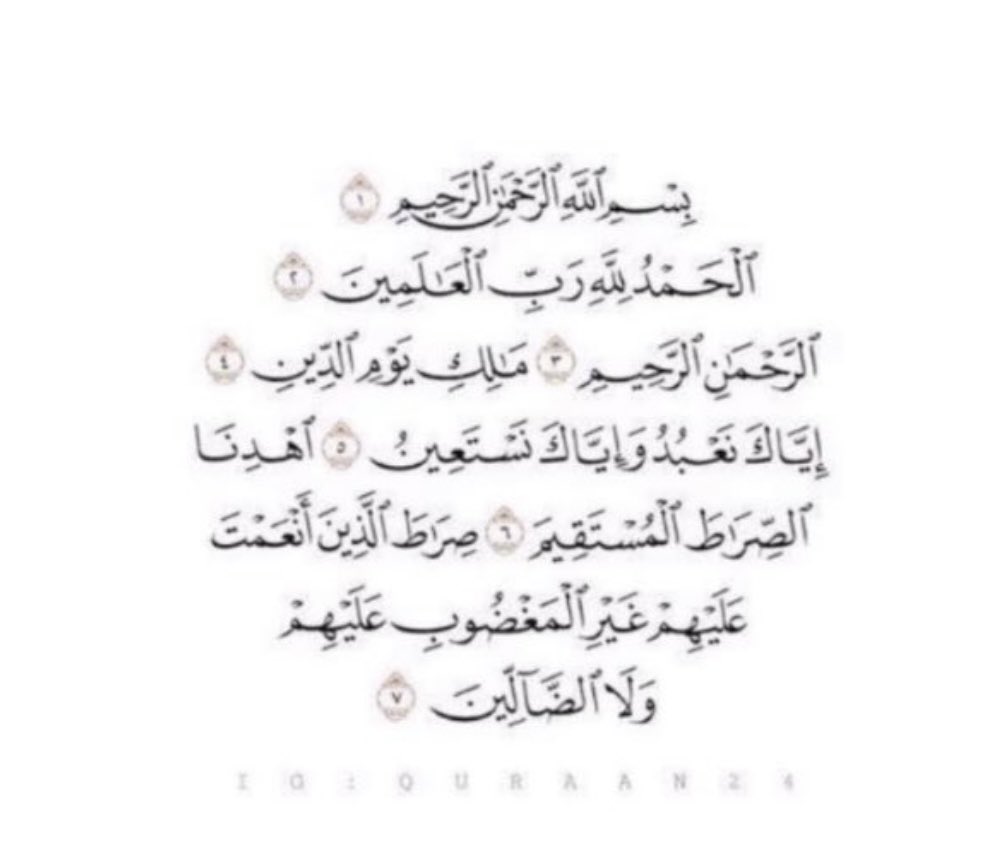 بِسْمِ ٱللَّهِ ٱلرَّحْمَٰنِ ٱلرَّحِيمِ ١
ٱلْحَمْدُ لِلَّهِ رَبِّ ٱلْعَٰلَمِينَ ٢
ٱلرَّحْمَٰنِ ٱلرَّحِيمِ ٣ مَٰلِكِ يَوْمِ ٱلدِّينِ ٤
إِيَّاكَ نَعْبُدُ وَإِيَّاكَ نَسْتَعِينُ ٥ ٱهْدِنَا
ٱلصِّرَٰطَ ٱلْمُسْتَقِيمَ ٦ صِرَٰطَ ٱلَّذِينَ أَنْعَمْتَ
عَلَيْهِمْ غَيْرِ ٱلْمَغْضُوبِ عَلَيْهِمْ
وَلَا ٱلضَّآلِّينَ ٧
IG:QURAAN24